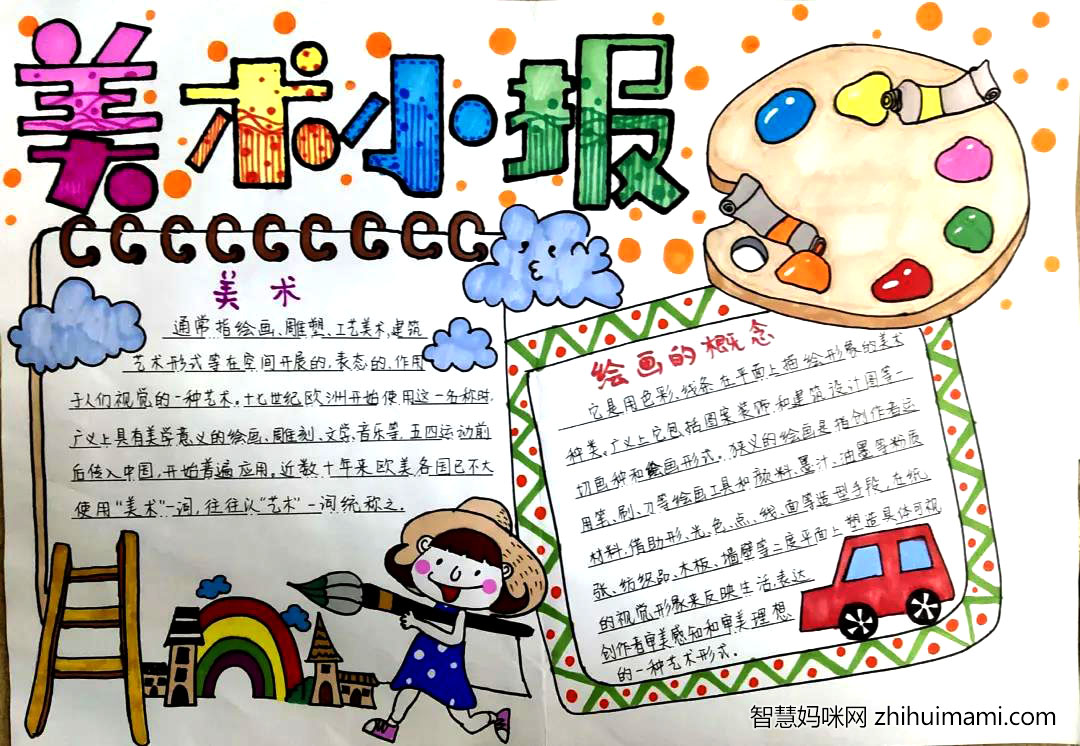 美术小报
美术
通常指绘画、雕塑、工艺美术、建筑
艺术形式等在空间开展的、表态的、作用
于人们视觉的一种艺术。十七世纪欧洲开始使用这一名称时，
广义上具有美学意义的绘画、雕刻、文学、音乐等，五四运动前
后传入中国，开始普遍应用。近数十年来欧美各国已不大
使用“美术”一词，往往以“艺术”一词统称之。
绘画的概念
它是用色彩、线条在平面上描绘形象的美术
种类。广义上它包括图案装饰和建筑设计图等一
切画种和绘画形式。狭义的绘画是指创作者运
用笔、刷、刀等绘画工具和颜料、墨汁、油墨等粉质
材料，借助形、光、色、点、线、面等造型手段，在纸
张、纺织品、木板、墙壁等二度平面上塑造具体可视
的视觉形象来反映生活，表达
创作者审美感知和审美理想
的一种艺术形式。
智慧妈咪网 zhihuimami.com